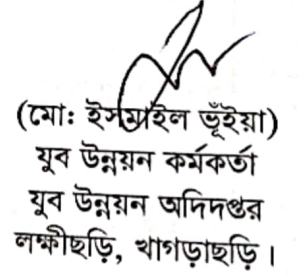 (মো: ইসমাইল ভূঁইয়া)
যুব উন্নয়ন কর্মকর্তা
যুব উন্নয়ন অদিদপ্তর
লক্ষীছড়ি, খাগড়াছড়ি।